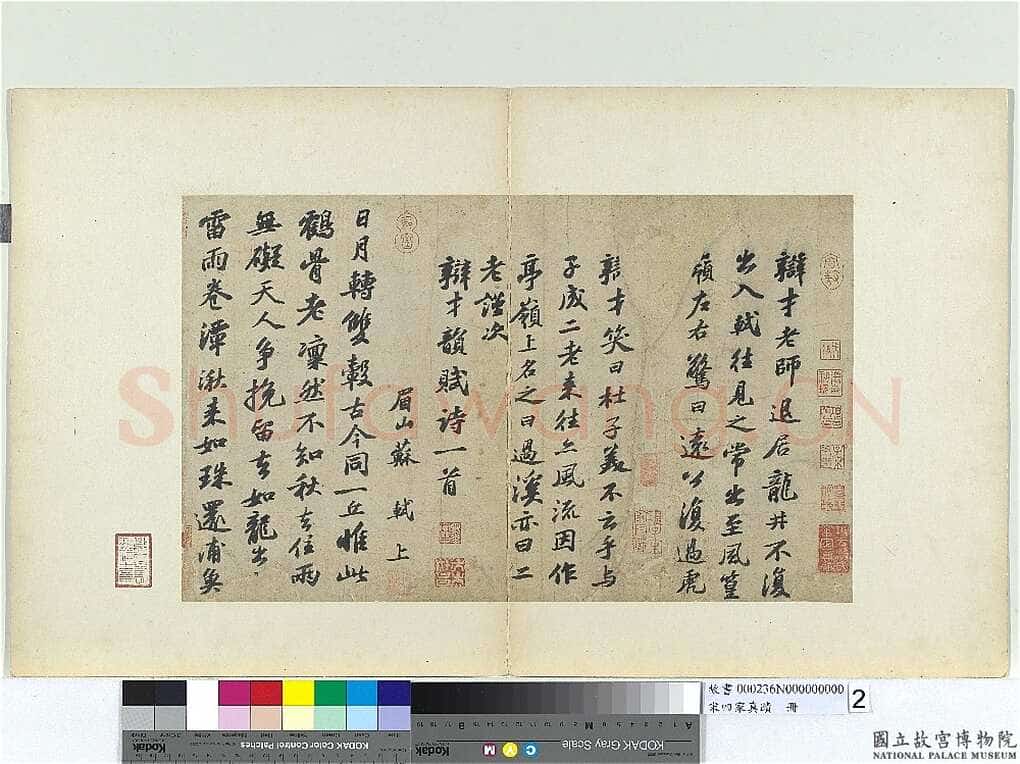 辯才老師退居龍井不復
出入軾往見之常出至風篁
嶺左右驚曰遠公復過虎
辯才笑曰杜子美不云乎與
子成二老来往亦風流因作
亭嶺上名之曰過溪亦曰二
老謹次
辯才韻賦詩一首
眉山蘇軾上
日月轉雙轂古今同一丘惟此
鶴骨老凜然不知秋去住兩
無礙天人争挽留去如龍出
雷雨卷潭湫来如珠還浦魚
Shufawang.CN
故書 000236N000000000
宋四家真蹟 冊
2
Kodak
KODAK Color Control Patches
Kodak
C
M
Y
KODAK Gray Scale
A
M
B
國立故宮博物院
NATIONAL PALACE MUSEUM